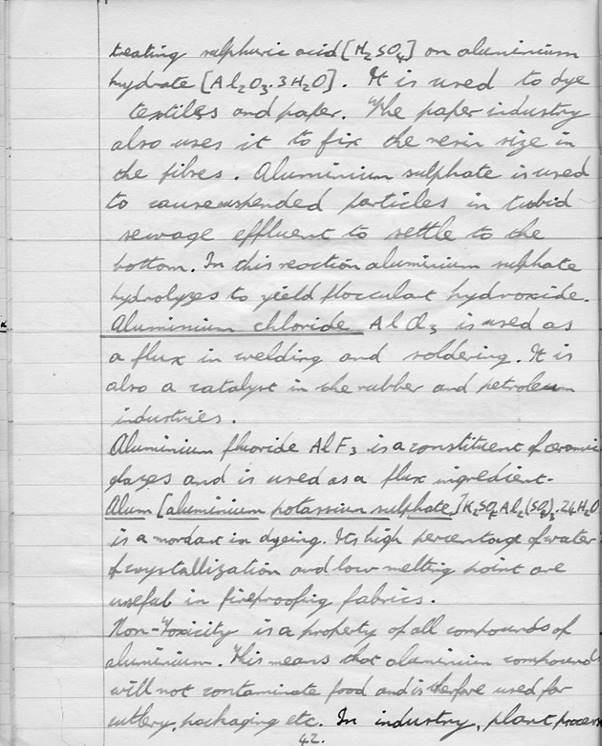 treating sulphuric acid [H2SO4] on aluminium
hydrate [Al2O3.3H2O]. It is used to dye
textiles and paper. The paper industry
also uses it to fix the resin size in
the fibres. Aluminium sulphate is used
to cause suspended particles in turbid
sewage effluent to settle to the
bottom. In this reaction aluminium sulphate
hydrolyzes to yield flocculant hydroxide.
Aluminium chloride AlCl3 is used as
a flux in welding and soldering. It is
also a catalyst in the rubber and petroleum
industries.
Aluminium fluoride AlF3 is a constituent of ceramic
glazes and is used as a flux ingredient.
Alum [aluminium potassium sulphate] K2SO4Al2(SO4)3.24H2O
is a mordant in dyeing. Its high percentage of water
of crystallization and low melting point are
useful in fireproofing fabrics.
Non-Toxicity is a property of all compounds of
aluminium. This means that aluminium compounds
will not contaminate food and is therfore used for
cutlery, packaging etc. In industry, plant process
42.